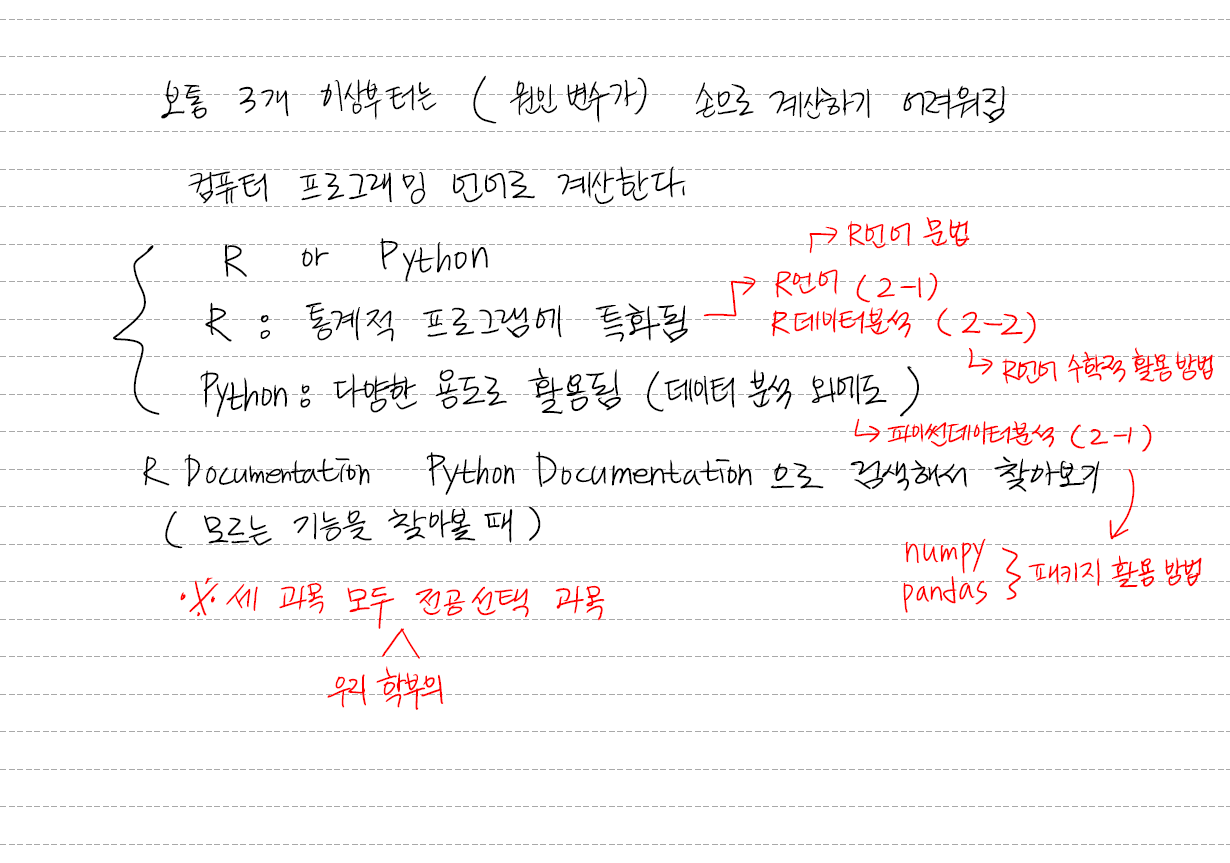 보통 3개 이상부터는 ( 원인 변수가 ) 손으로 계산하기 어려워짐
컴퓨터 프로그래밍 언어로 계산한다.
R or Python
→ R언어 문법
R : 통계적 프로그램에 특화됨
→ R언어 (2-1)
R데이터분석 (2-2)
→ R언어 수학적 활용방법
Python : 다양한 용도로 활용됨 (데이터 분석 외에도 )
→ 파이썬데이터분석 (2-1)
R Documentation Python Documentation 으로 검색해서 찾아보기
( 모르는 기능을 찾아볼 때 )
numpy
pandas } 패키지 활용 방법
※ 세 과목 모두 전공선택 과목
우리 학부의